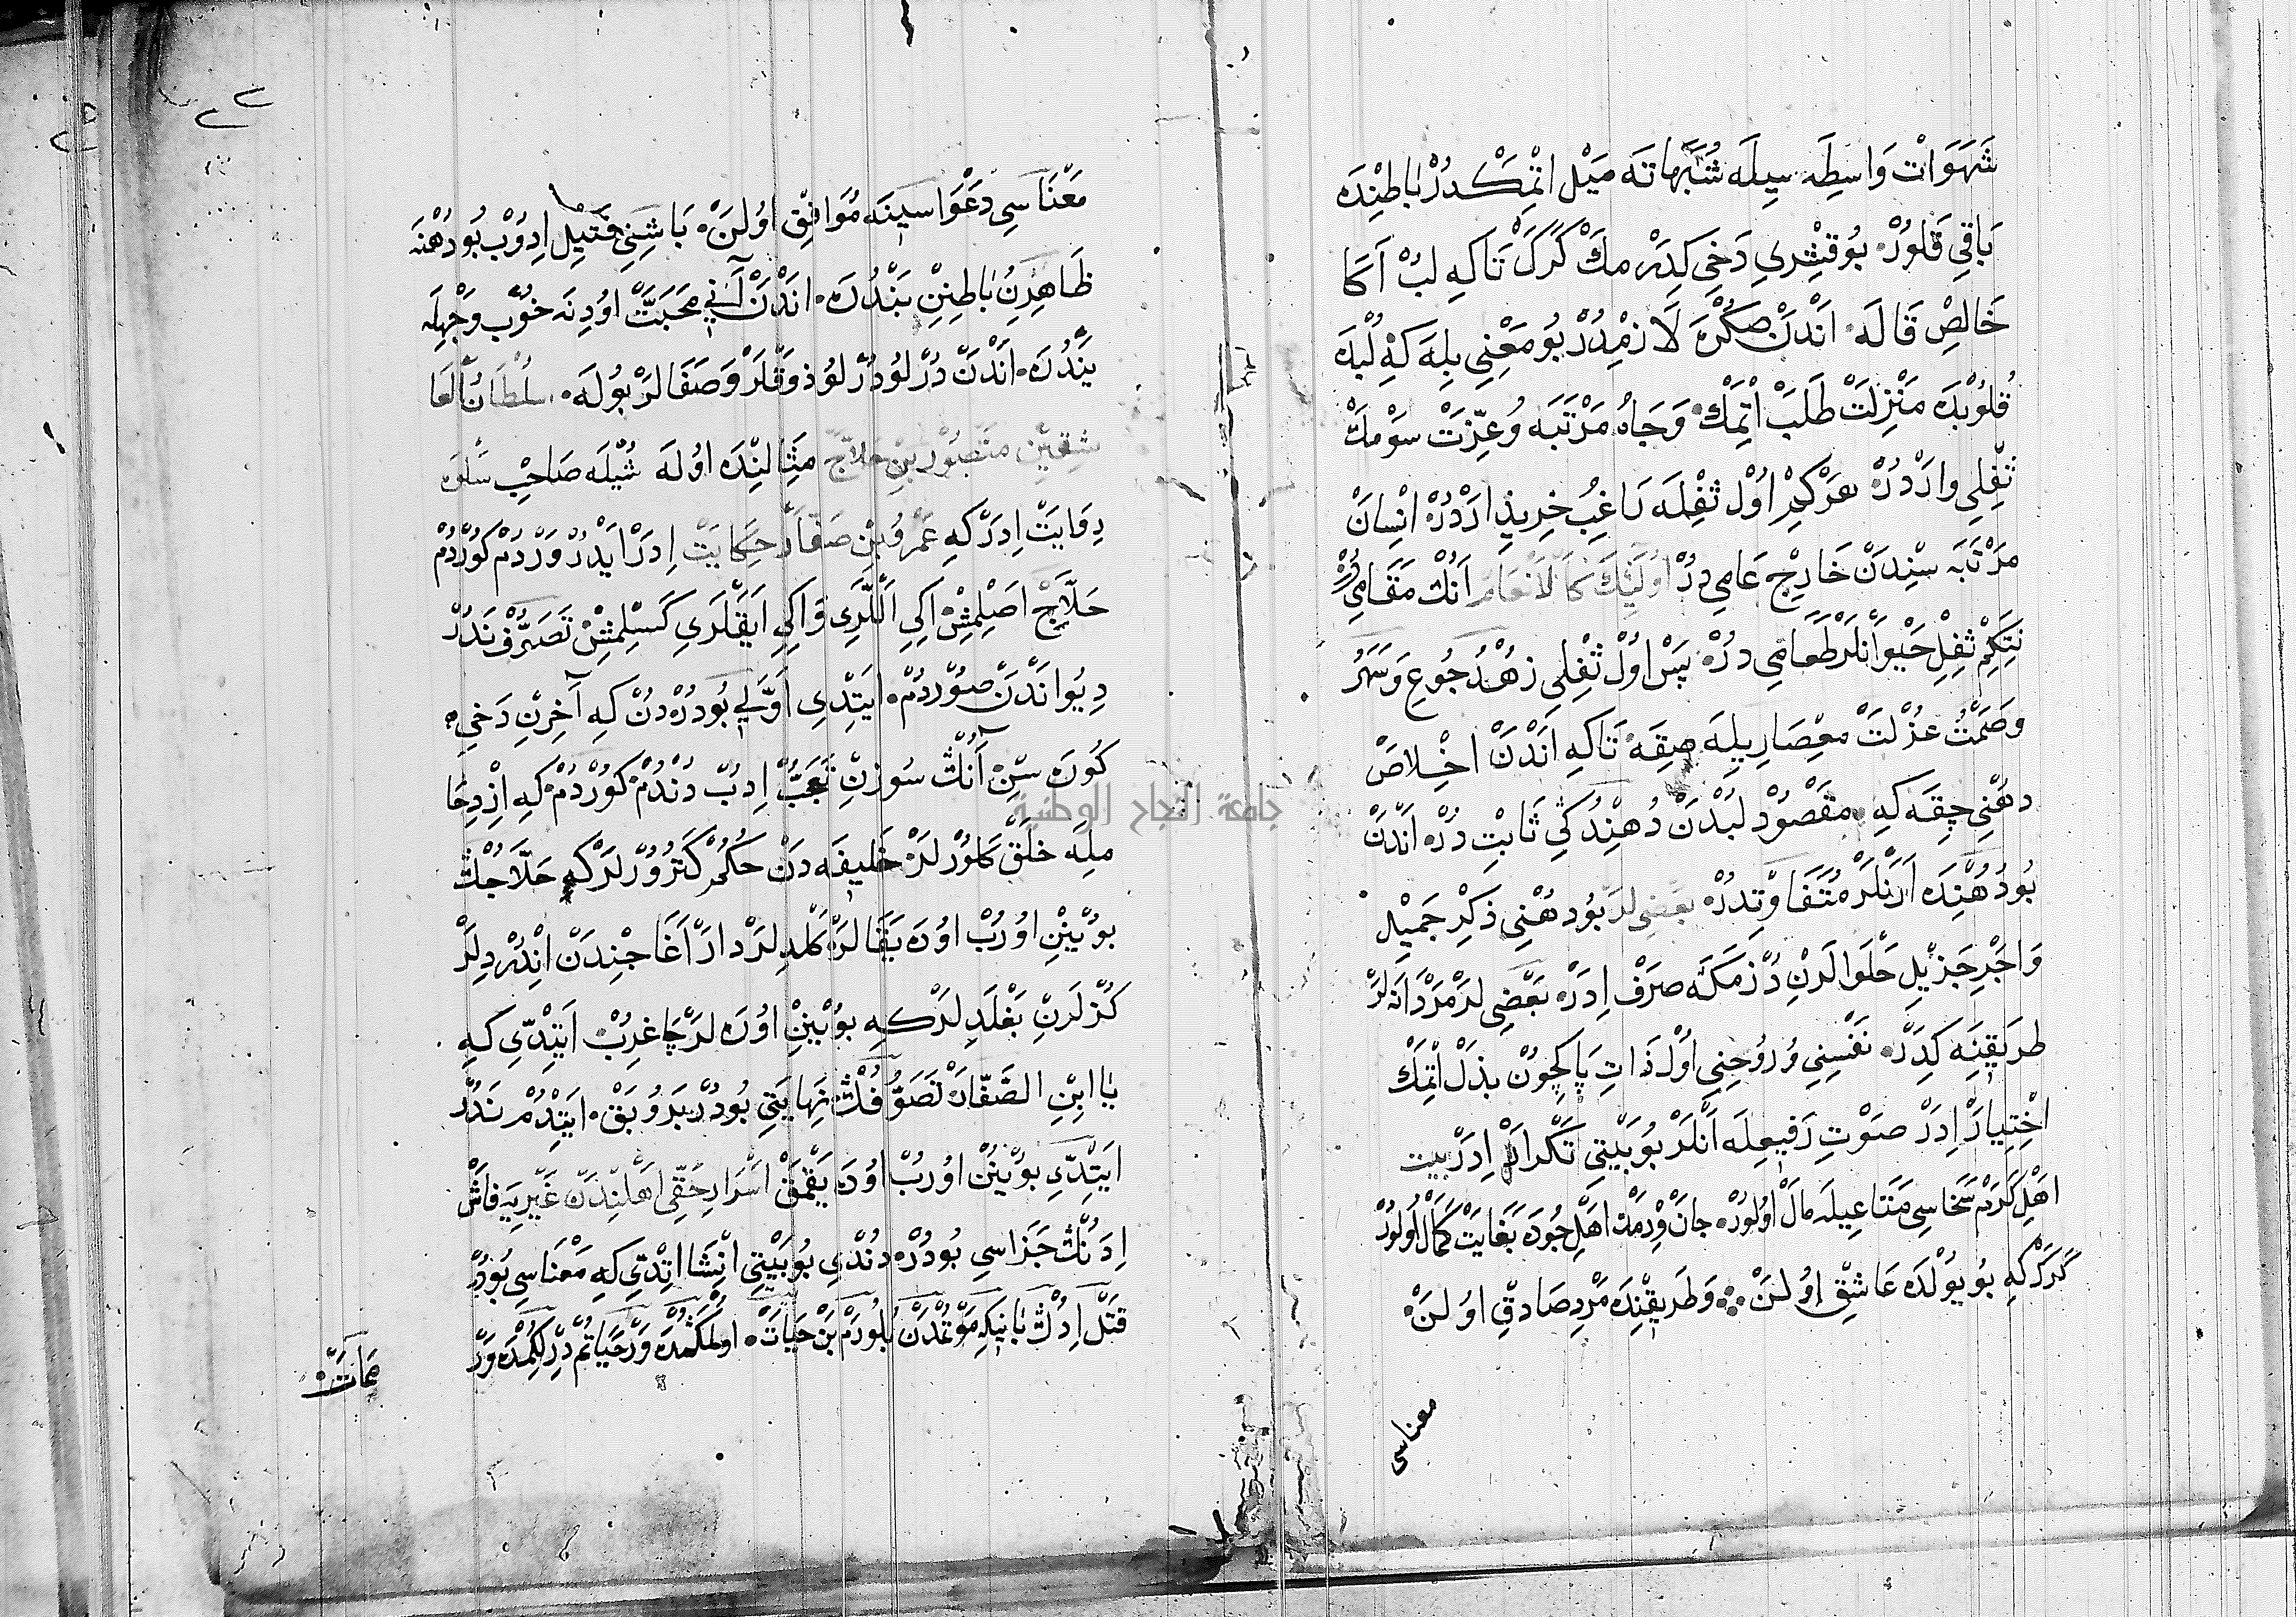 شَهَوَاتْ وَاسْطِه سِيلَه شُبَّهَاتَه مَيْل اتْمَكْدُرْ بَاطِنْدَه
بَاقِي قَلُورْ بُو قِشْرِي دَخِي كِدَرْمَكْ كَرَكْ تَاكِه لُبْ اَكَا
خَالِصْ قَالَه اَنْدَنْ صَكْرَه لَازِمْدُرْ بُو مَعْنِي بِلَه كِه لُبْدَه
قُلُوبْدَه مَنْزِلَتْ طَلَبْ اتْمَكْ وَجَاهْ مَرْتَبَه وُعِزَّتْ سَوْمَكْ
ثِفْلِي وَارْدُرْ هَرْكِمْ اُولْ ثِفْلَه رَاغِبْ خَرِيدَارْدُرْ انْسَانْ
مَرْتَبَه سِنْدَنْ خَارِجْ عَامِي دُرْ اُولَئِكَ كَالْاَنْعَامِ اَنُكْ مَقَامِيدُرْ
نِتَكِمْ ثِفْلِ حَيْوَانْلَرْ طَعَامِي دُرْ پَسْ اُولْ ثِفْلِي زُهْدْ جُوعِ وَسَهَرْ
وَصَمْتُ عُزْلَتْ مِعْصَارِيلَه صِقَه تَاكِه اَنْدَنْ اخْلَاصْ
دُهْنِي چِقَه كِه مَقْصُودْ لُبْدَنْ دُهْنِدُ كِي ثَابِتْ دُرْ اَنْدَنْ
بُو دُهْنْدَه اَرَنْلَرْ مُتَفَاوِتْدُرْ بَعْضِي لَرْ بُو دُهْنِي ذِكْرِ جَمِيْل
وَاجْرِ جَزِيْلِ حَلْوَالَرِنْ دُزْمَكَه صَرْفْ اِدَرْ بَعْضِي لَرْ مَرْدَانَه لَرْ
طَرِيقِنَه كِدَرْ نَفْسِنِي وُرُوحِنِي اُولْ ذَاتِ پَاكِچُونْ بَذْلْ اتْمَكْ
اخْتِيَارْ اِدَرْ صَوْتِ رَفِيعِلَه اَنْلَرْ بُو بَيْتِي تَكْرَارْ اِدَرْ بيت
اهْلِ كَرَمْ سَخَاسِي مَتَاعِيلَه مَالْ اُولُورْ جَانْ وِرْمَكْ اهْلِ جُودَه بَغَايَتْ كَمَالْ اُولُورْ
كَرَكْ كِه بُو يُولْدَه عَاشِقْ اُولَنْ وَطَرِيقِنْدَه مَرْدِ صَادِقِ اوُلَنْ
معناسى
مَعْنَاسِي دَعْوَاسِينَه مُوَافِقْ اوُلَنْ بَاشِنِي فَتِيلْ اِدُوبْ بُو دُهْنَه
ظَاهِرِنُ بَاطِنِنْ بَنْدُرَه اَنْدَنْ آنِي مَحَبَّتْ اوُدِنَه خُوبْ وَجْهِلَه
يَنْدُرَه اَنْدَنْ دُرْلُو دُرْلُو ذَوْقْلَرْ وَصَفَالَرْ بُولَه سُلْطَانُ الْعَا
شِقِينْ مَنْصُورْ بِنْ حَلَّاجْ مِثَالِنْدَه اوُلَه شُيْلَه صَاحِبِ سُلُوك
رِوَايَتْ اِدَرْ كِه عَمْرُو بْنِ صَفَّارْ حِكَايَتْ اِدَرْ ايْدُرْ وَرْدُمْ كُورْدُمْ
حَلَّاجْ اصِلْمِشْ اكِي اَلَّرِي وَاكِي اَيَقْلَرِي كَسِلْمِشْ تَصَوُّفْ نَدُرْ
دِيُو اَنْدَنْ صُورْدُمْ ايَتْدِي اَوَّلِي بُودُرْ دُنْ كِه آخِرِنْ دَخِي
كُورَه سِنْ اَنُكْ سُوزِنْ تَعَجُّبْ اِدُبْ دُنْدُمْ كُورْدُمْ كِه اِزْدِحَا
مِلَه خَلْقْ كَلُورْلَرْ خَلِيفَه دَنْ حُكُمْ كَتُرُورْلَرْ كِه حَلَّاجُكْ
بُويْنِنْ اوُرُبْ اوُدَه يَقَالَرْ كَلْدِلَرْ دَارْ اَغَاجِنْدَنْ انْدُرْدِلَرْ
كُزْلَرِنْ بَغْلَدِلَرْكِه بُويْنِنْ اوُرَه لَرْ چَاغِرُبْ ايَتْدِي كِه
يَا ابْنِ الصَّفَّارْ تَصَوُّفُكْ نِهَايَتِي بُودُرْ بَرُو بَقْ ايَتْدُمْ نَدُرْ
ايَتْدِي بُويْنُنْ اوُرُبْ اوُدَه يَقْمَقْ اَسْرَارِ حَقِّي اهْلِنْدَنْ غَيْرِيَه فَاشْ
اِدَنُكْ جَزَاسِي بُودُرْ دُنْدِي بُو بَيْتِي انْشَا اتْدِي كِه مَعْنَاسِي بُودُرْ
قَتْلْ اِدُكْ بَانِيكِه مَوْتُمْدَنْ بُلُورَمْ بَنْ حَيَاتْ اوُلْمَكُمْدَه وَرْ حَيَاتُمْ دِرِلِكُمْدَه وَرْ
مَمَاتْ
جامعة النجاح الوطنية